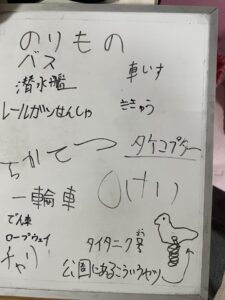 のりもの
バス
車いす
潜水艦
ききゅう
レールガンせんしゃ
タケコプター
ちかてつ
一輪車
でん車
ロープウェイ
タイタニック号
ごう
チャリ
公園にあるこういうヤツ